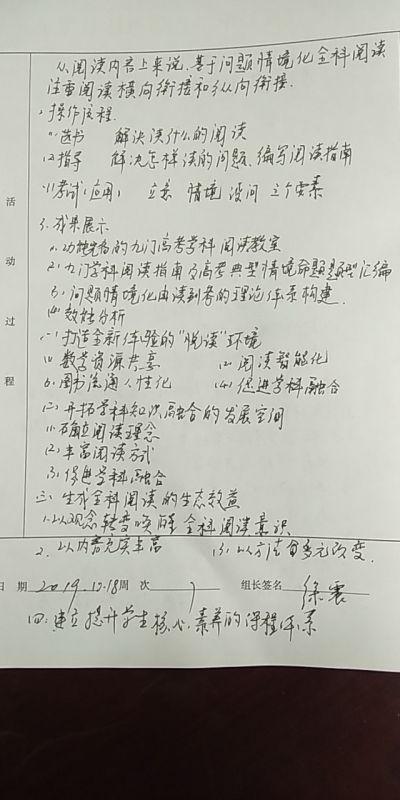 从阅读内容上来说,基于问题情境化全科阅读
注重阅读横向衔接和纵向衔接.
2操作流程.
(1)选书 解决读什么的阅读
(2)指导 解决怎样读的问题,编写阅读指南
(3)考试(应用) 立意 情境 设问 三个要素
3.成果展示
(1)功能完备的九门高考学科阅读教室
(2)九门学科阅读指南及高考典型情境命题题型汇编
(3)问题情境化由读到考的理论体系构建.
(四)效能分析
(一)打造全新体验的"悦读"环境
(1)数字资源共享 (2)阅读智能化
(3)图书流通人性化 (4)促进学科融合
(二)开拓学科知识融合的发展空间
(1)确立阅读理念
(2)丰富阅读方式
(3)促进学科融合
三.生成全科阅读的生态效益
1.以观念转变唤醒全科阅读意识
2.以内替充实丰富 (3)以方法多元改变.
活
动
过
程
日期 2019.10.18 周次 7 组长签名 徐震
四.建立提升学生核心素养的课程体系